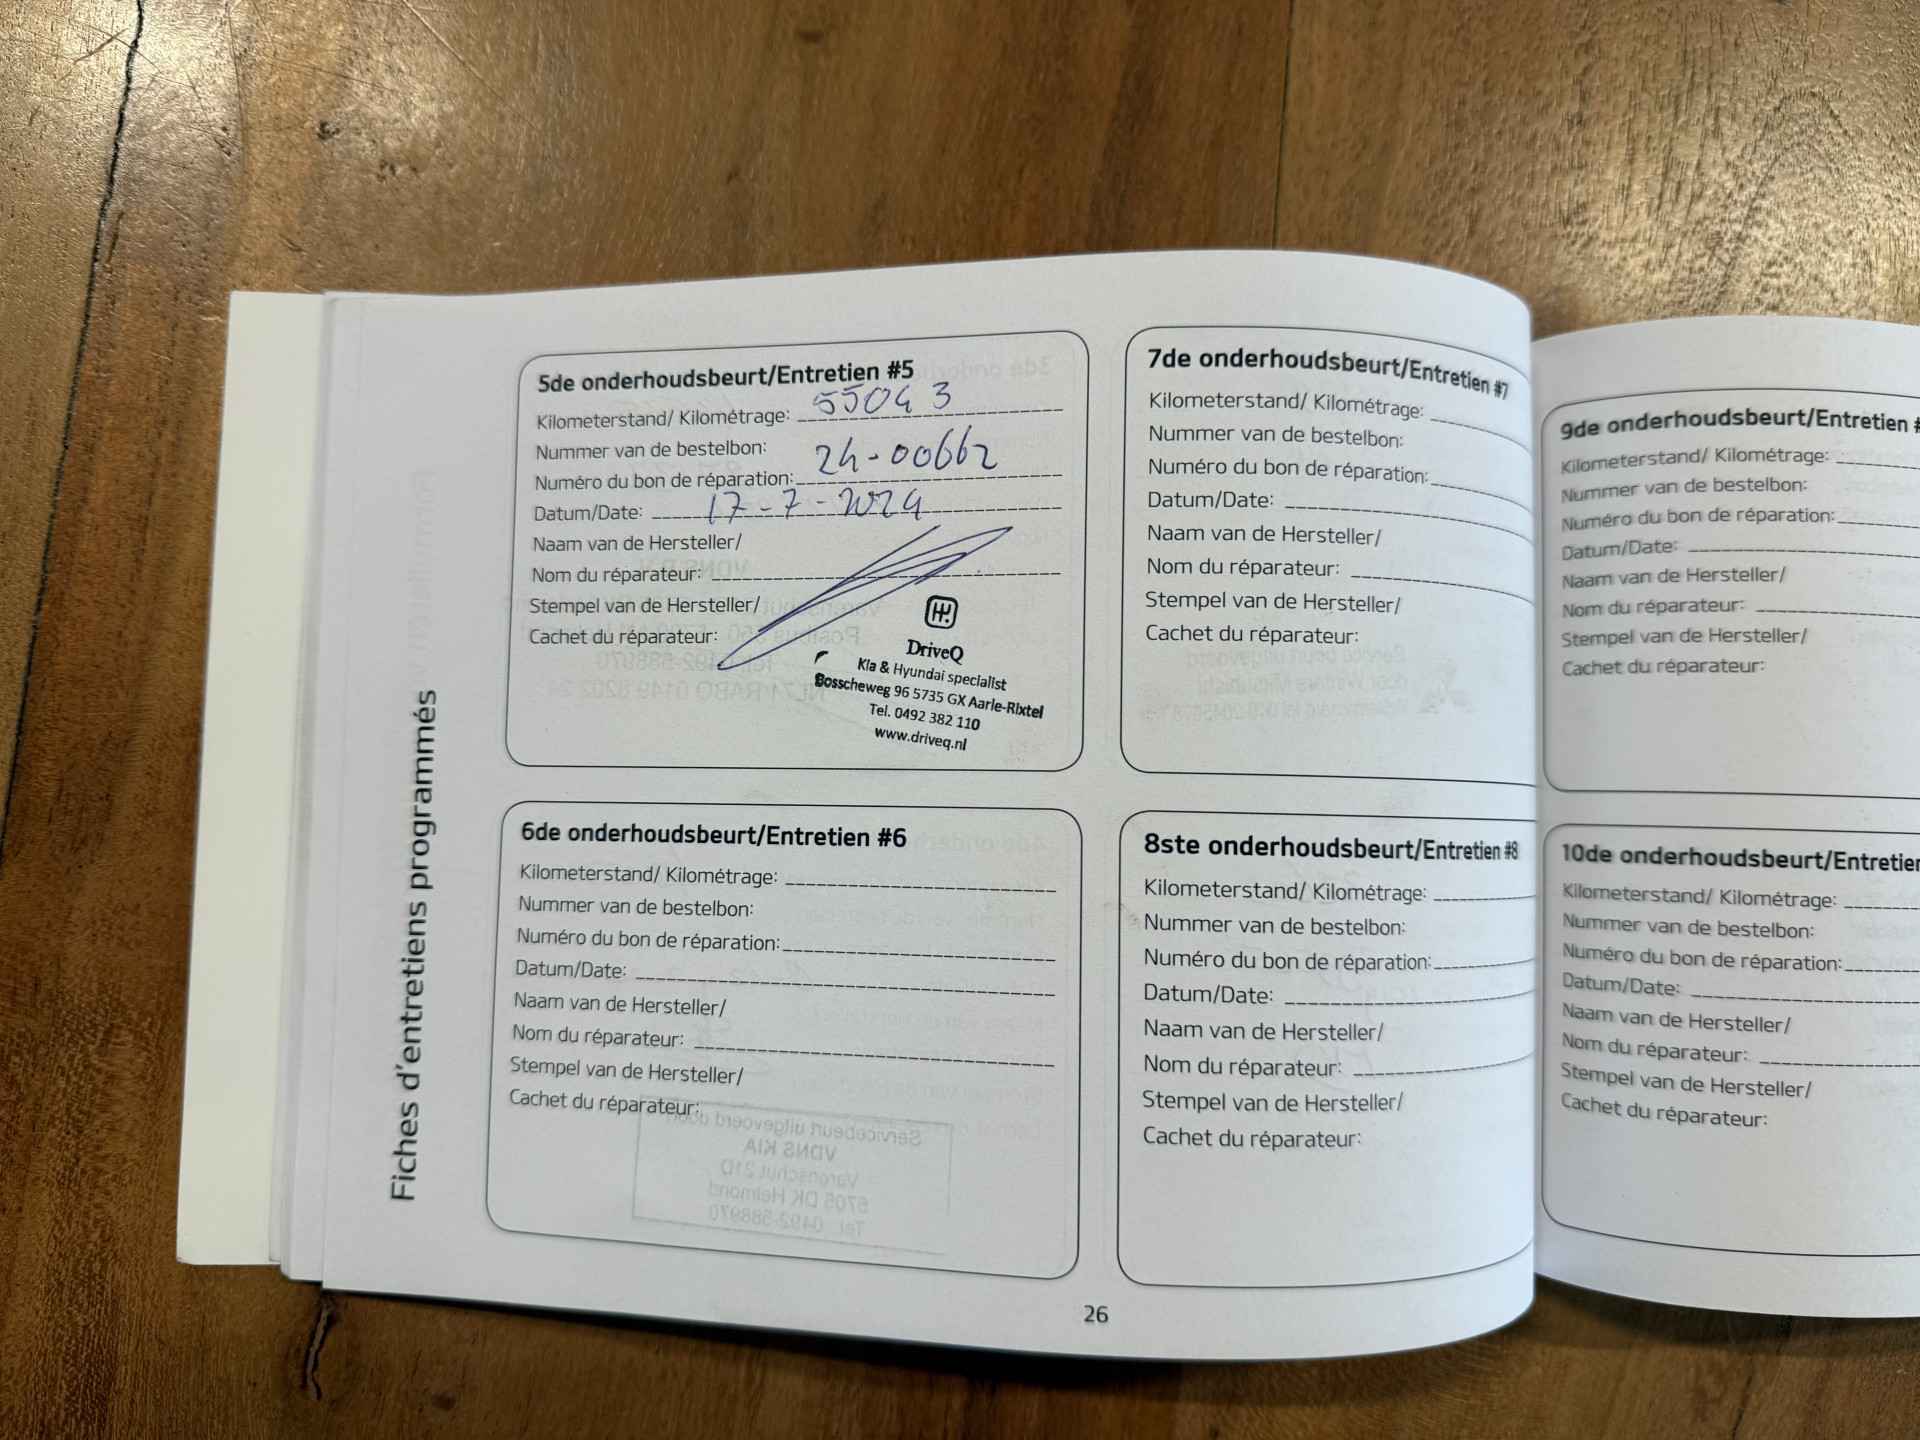 Fiches d'entretiens programmés
5de onderhoudsbeurt/Entretien #5
Kilometerstand/ Kilométrage: 55043
Nummer van de bestelbon:
Numéro du bon de réparation: 24-00662
Datum/Date: 17-7-2024
Naam van de Hersteller/
Nom du réparateur:
Stempel van de Hersteller/
Cachet du réparateur:
DriveQ
Kia & Hyundai specialist
Bosscheweg 96 5735 GX Aarle-Rixtel
Tel. 0492 382 110
www.driveq.nl
6de onderhoudsbeurt/Entretien #6
Kilometerstand/ Kilométrage:
Nummer van de bestelbon:
Numéro du bon de réparation:
Datum/Date:
Naam van de Hersteller/
Nom du réparateur:
Stempel van de Hersteller/
Cachet du réparateur:
Servicebeurt uitgevoerd door:
VDNS KIA
Varenschut 21D
5705 DK Helmond
Tel. 0492-588970
7de onderhoudsbeurt/Entretien #7
Kilometerstand/ Kilométrage:
Nummer van de bestelbon:
Numéro du bon de réparation:
Datum/Date:
Naam van de Hersteller/
Nom du réparateur:
Stempel van de Hersteller/
Cachet du réparateur:
8ste onderhoudsbeurt/Entretien #8
Kilometerstand/ Kilométrage:
Nummer van de bestelbon:
Numéro du bon de réparation:
Datum/Date:
Naam van de Hersteller/
Nom du réparateur:
Stempel van de Hersteller/
Cachet du réparateur:
26
9de onderhoudsbeurt/Entretien #
Kilometerstand/ Kilométrage:
Nummer van de bestelbon:
Numéro du bon de réparation:
Datum/Date:
Naam van de Hersteller/
Nom du réparateur:
Stempel van de Hersteller/
Cachet du réparateur:
10de onderhoudsbeurt/Entretien
Kilometerstand/ Kilométrage:
Nummer van de bestelbon:
Numéro du bon de réparation:
Datum/Date:
Naam van de Hersteller/
Nom du réparateur:
Stempel van de Hersteller/
Cachet du réparateur: